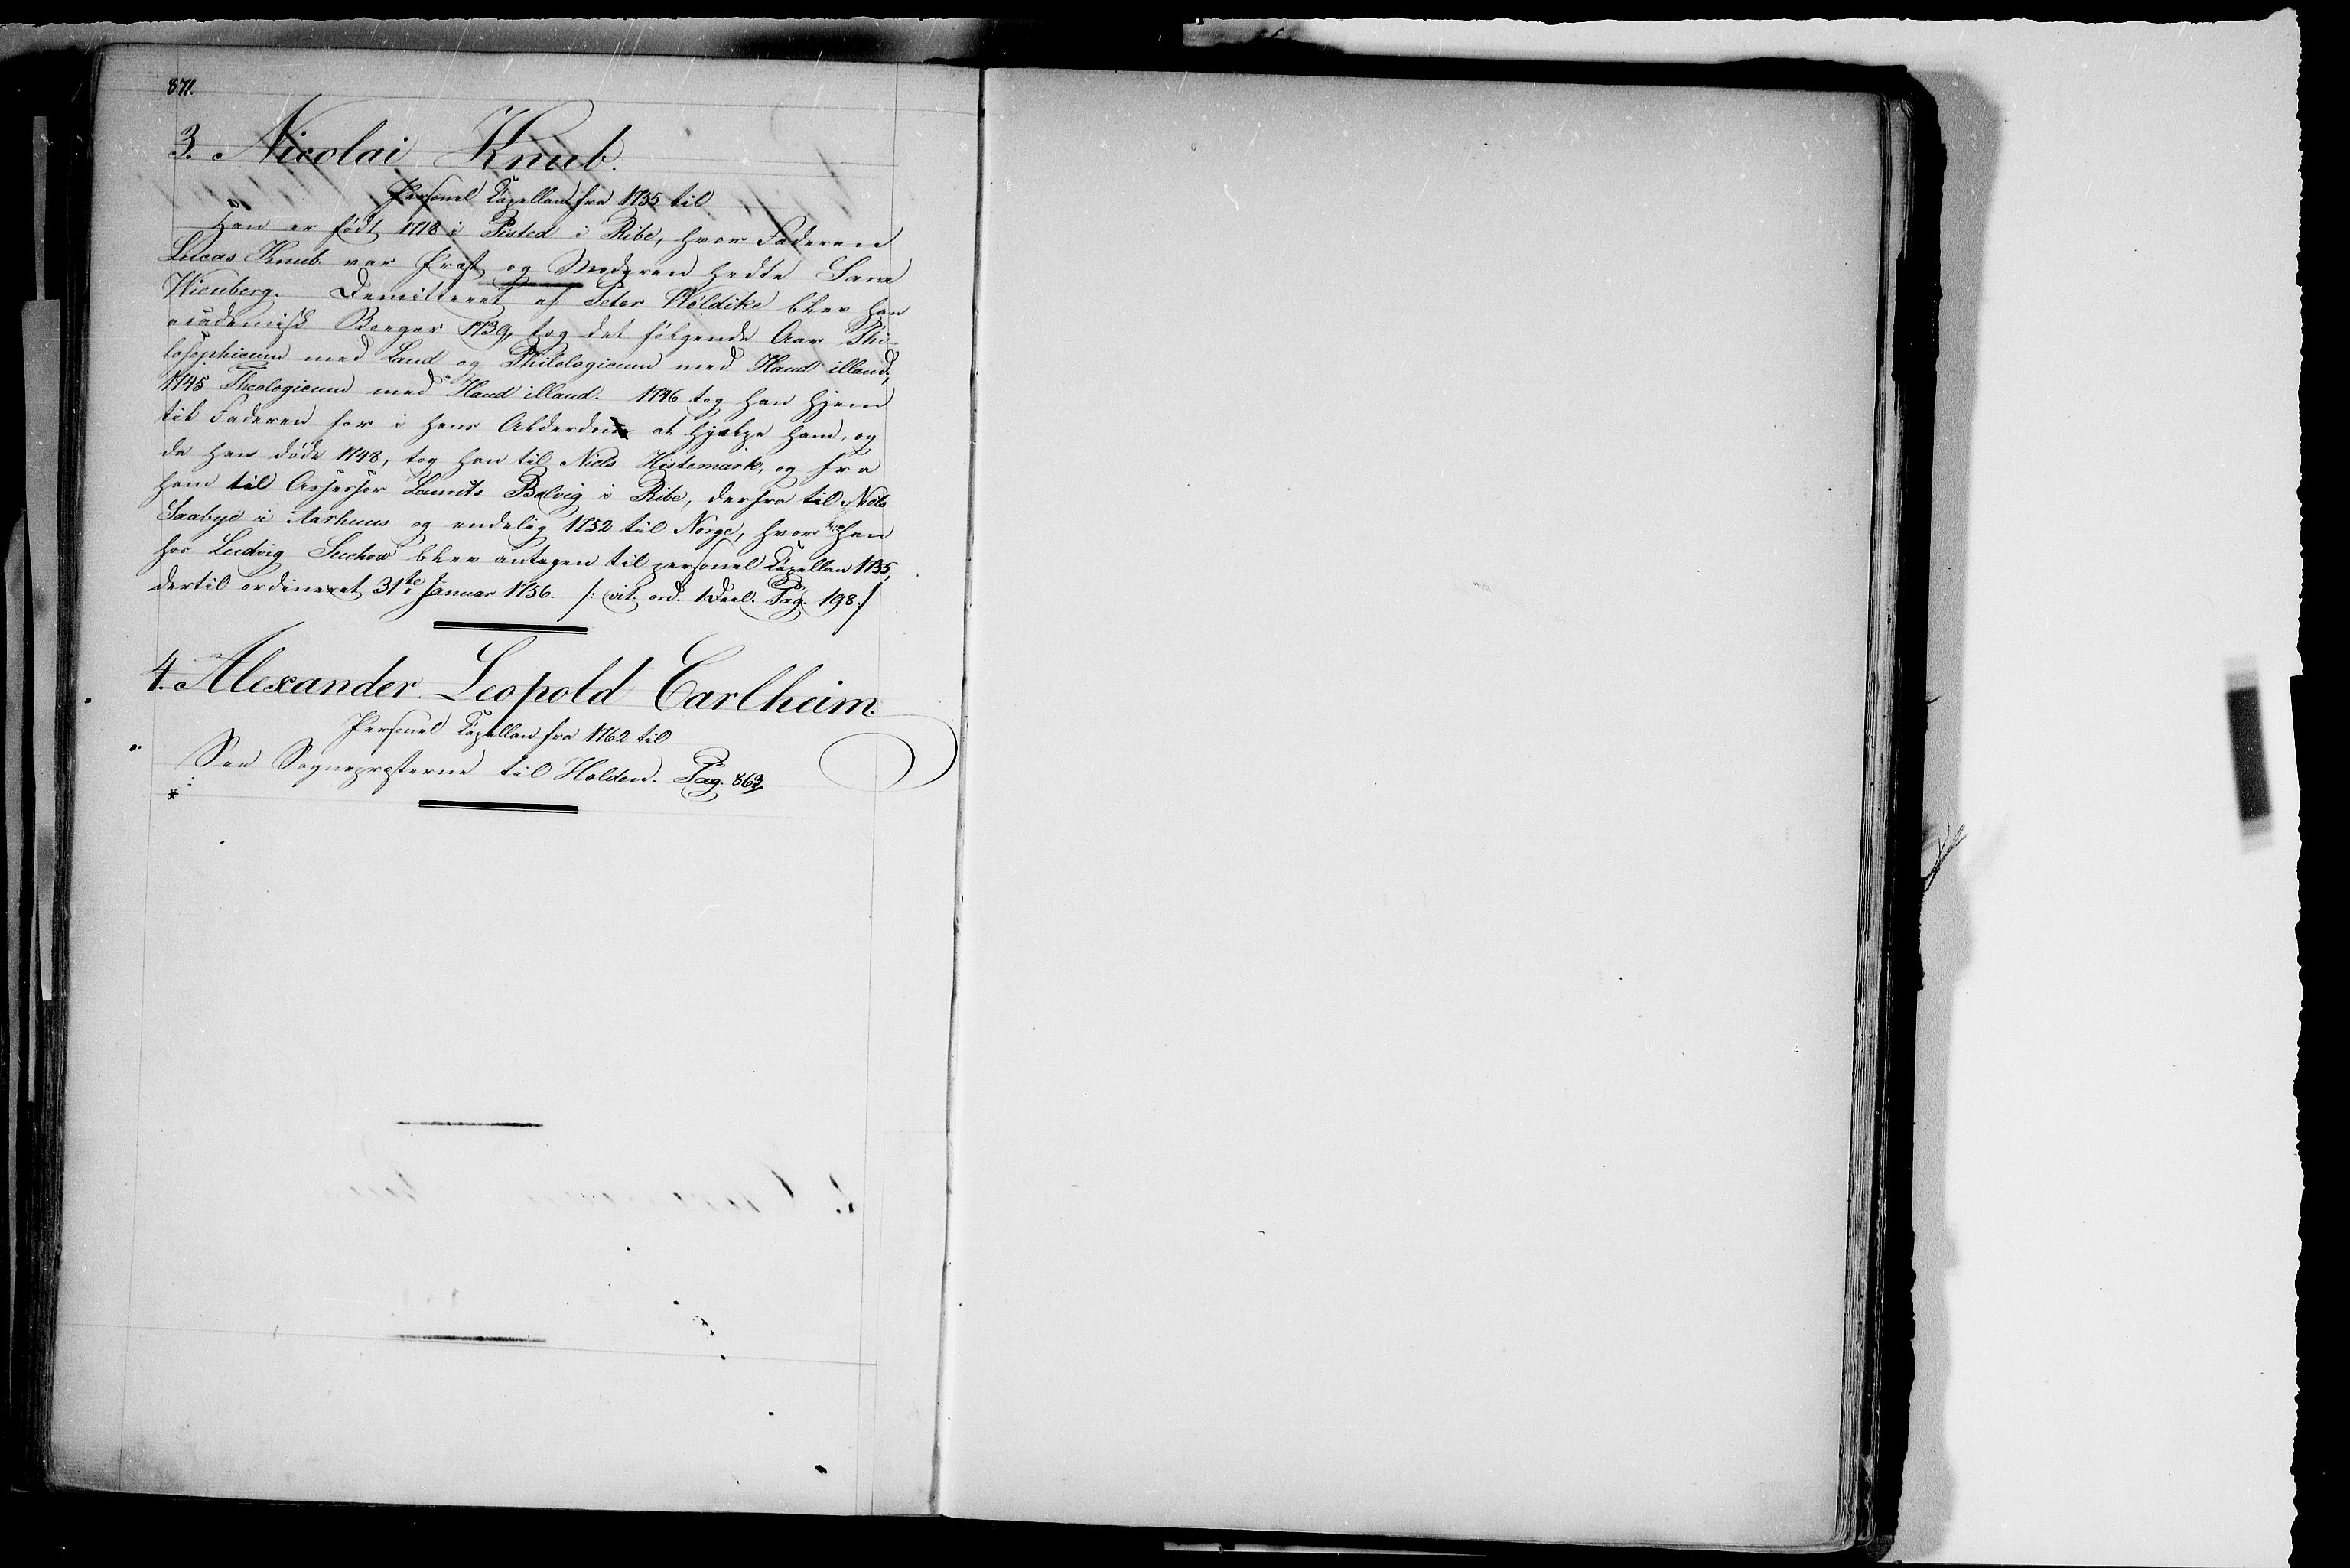 871.
3. Nicolai Knub.
Personel Kapellan fra 1755 til
Han er født 1718 i Pisted i Ribe, hvor Faderen
Lucas Knub var Præst og Moderen hedte Sara
Wienberg. Demitteret af Peter Wöldike blev han
academisk Borger 1739, tog det følgende Aar Phi-
losophicum med Laud og Philologicum med Haud illaud,
1745 Theologicum med Haud illaud. 1746 tog han hjem
til Faderen for i hans Alderdom at hjælpe ham, og
da han døde 1748, tog han til Niels Histemark, og fra
ham til Assessor Laurits Balvig i Ribe, derfra til Niels
Saabye i Aarhuus og endelig 1752 til Norge, hvor han
hos Ludvig Suchow blev antagen til personel Kapellan 1755,
dertil ordineret 31te Januar 1756. /: vit. ord. 1 Deel. Pag. 198 :/
4. Alexander Leopold Carlheim.
Personel Kapellan fra 1762 til
See Sognepræsterne til Holden. Pag. 863,